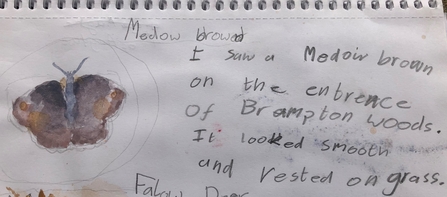 Medow browed
I saw a Medoir brown
on the entrence
Of Brampton woods.
It looked smooth
and rested on grass.
Falow Deer